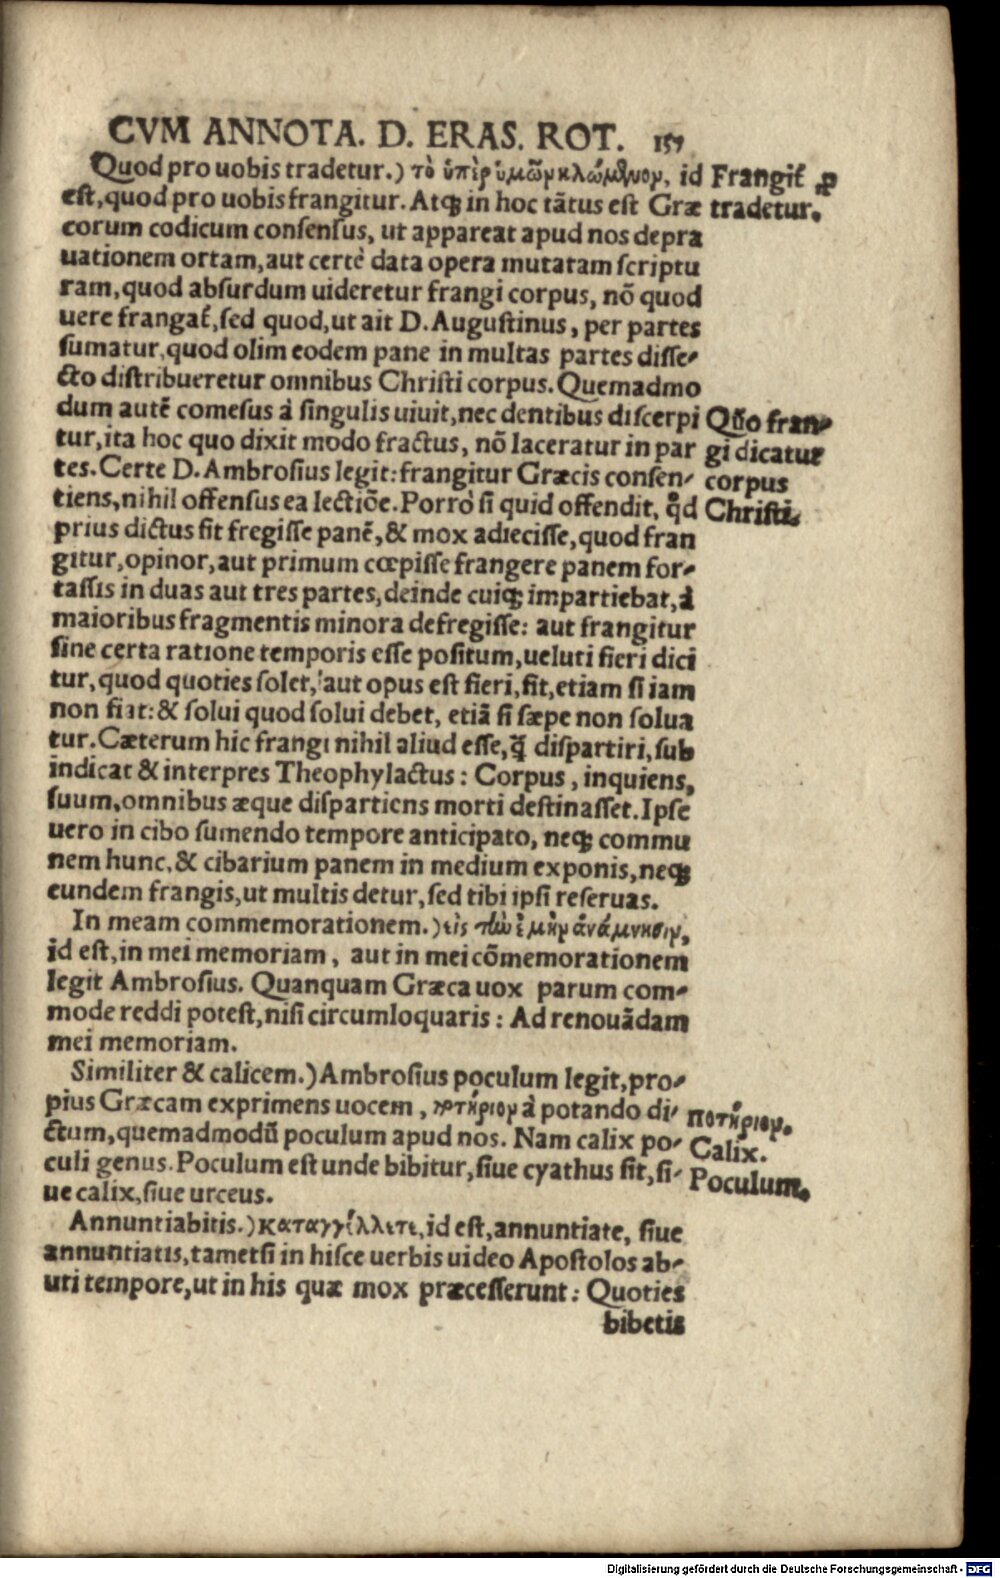 CVM ANNOTA. D. ERAS. ROT. 157
Quod pro uobis tradetur.) τὸ ὑπὲρ ὑμῶν κλώμενον, id
est, quod pro uobis frangitur. Atq; in hoc tãtus est Græ
corum codicum consensus, ut appareat apud nos depra
uationem ortam, aut certè data opera mutatam scriptu
ram, quod absurdum uideretur frangi corpus, nõ quod
uere frangať, sed quod, ut ait D. Augustinus, per partes
sumatur, quod olim eodem pane in multas partes disse-
cto distribueretur omnibus Christi corpus. Quemadmo
dum autẽ comesus à singulis uiuit, nec dentibus discerpi
tur, ita hoc quo dixit modo fractus, nõ laceratur in par
tes. Certe D. Ambrosius legit: frangitur Græcis consen-
tiens, nihil offensus ea lectiõe. Porrò si quid offendit, qđ
prius dictus sit fregisse panẽ, & mox adiecisse, quod fran
gitur, opinor, aut primum cœpisse frangere panem for-
tassis in duas aut tres partes, deinde cuiq; impartiebat, à
maioribus fragmentis minora defregisse: aut frangitur
sine certa ratione temporis esse positum, ueluti fieri dici
tur, quod quoties solet, aut opus est fieri, fit, etiam si iam
non fiat: & solui quod solui debet, etiã si sæpe non solua
tur. Cæterum hic frangi nihil aliud esse, q̃ dispartiri, sub
indicat & interpres Theophylactus: Corpus, inquiens,
suum, omnibus æque dispartiens morti destinasset. Ipse
uero in cibo sumendo tempore anticipato, neq; commu
nem hunc, & cibarium panem in medium exponis, neq;
eundem frangis, ut multis detur, sed tibi ipsi reseruas.
In meam commemorationem.) εἰς τὴν ἐμὴν ἀνάμνησιν,
id est, in mei memoriam, aut in mei cõmemorationem
legit Ambrosius. Quanquam Græca uox parum com-
mode reddi potest, nisi circumloquaris: Ad renouãdam
mei memoriam.
Similiter & calicem.) Ambrosius poculum legit, pro-
pius Græcam exprimens uocem, ποτήριον à potando di-
ctum, quemadmodũ poculum apud nos. Nam calix po-
culi genus. Poculum est unde bibitur, siue cyathus sit, si-
ue calix, siue urceus.
Annuntiabitis.) καταγγέλλετε, id est, annuntiate, siue
annuntiatis, tametsi in hisce uerbis uideo Apostolos ab-
uti tempore, ut in his quæ mox præcesserunt: Quoties
bibetis
Frangiť ꝓ
tradetur.
Quõ fran-
gi dicatur
corpus
Christi.
ποτήριον.
Calix.
Poculum.
Digitalisierung gefördert durch die Deutsche Forschungsgemeinschaft - DFG